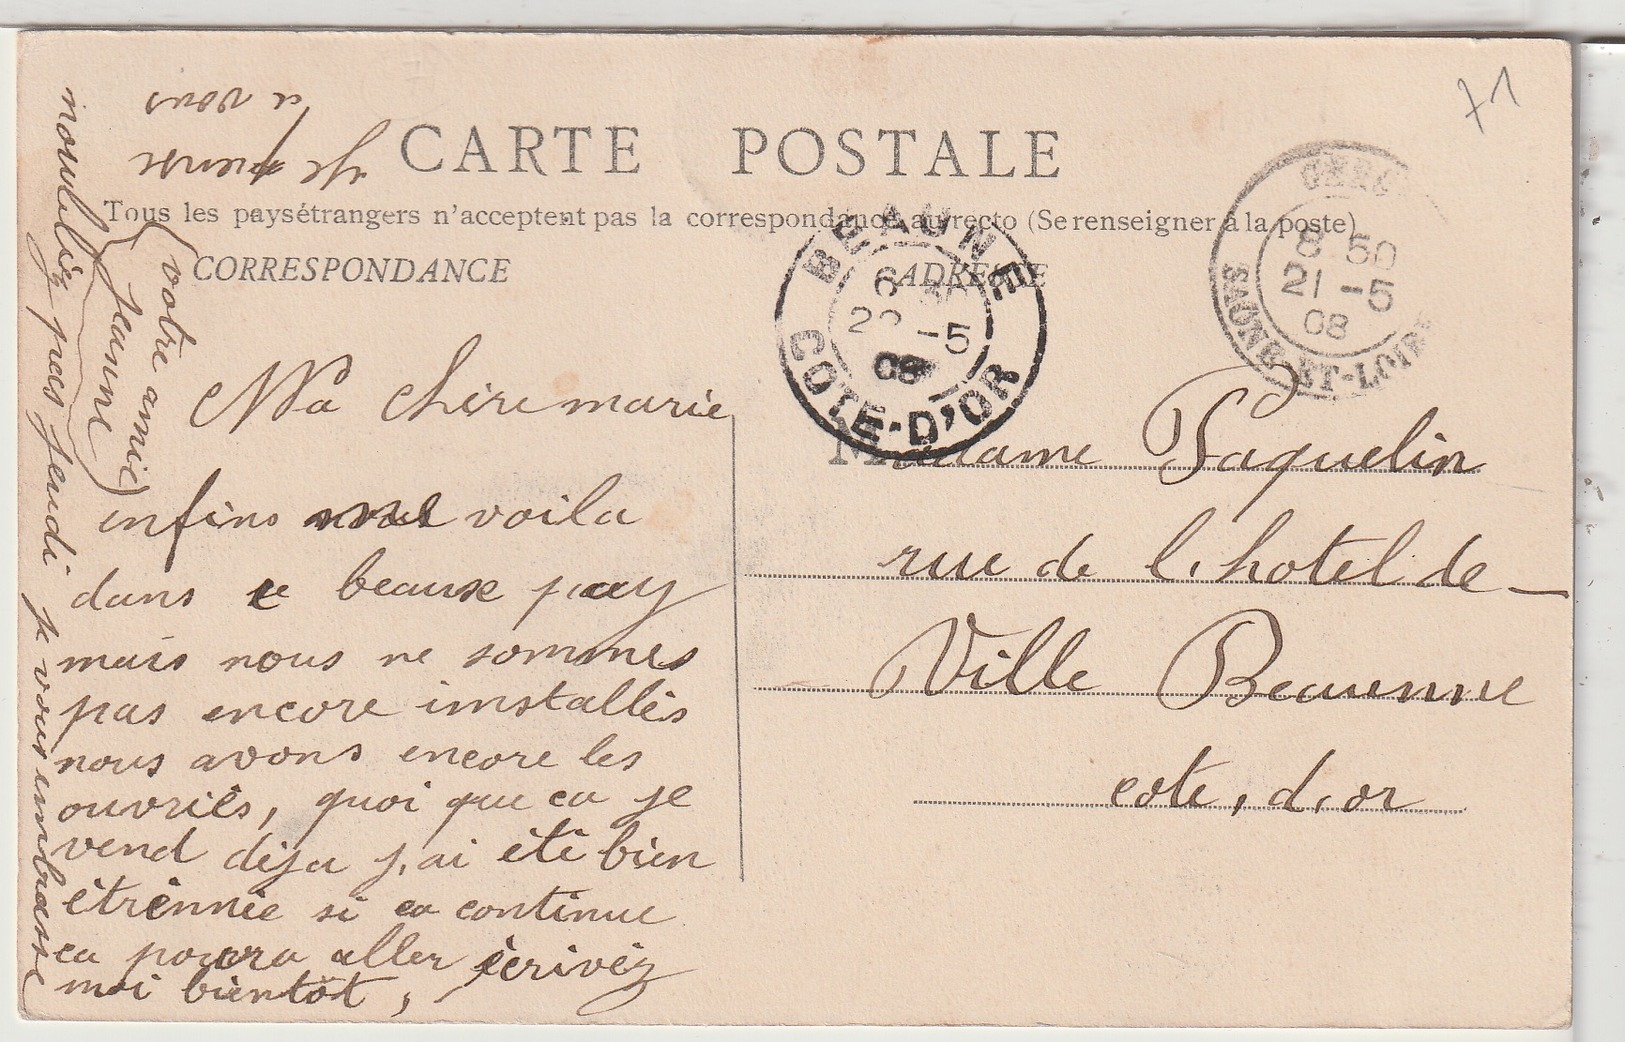 71
CARTE POSTALE
Tous les pays étrangers n'acceptent pas la correspondance au recto (Se renseigner à la poste)
CORRESPONDANCE
ADRESSE
BEAUNE
6
-5
08
COTE-D'OR
8 50
21 -5
08
SAONE-ET-LOIRE
Ma chere marie
enfins me voila
dans ce beause pay
mais nous ne sommes
pas encore imstallés
nous avons encore les
ouvriés, quoi que ca je
vend deja j,ai été bien
étrénnée si ca continue
ca poura aller écrivéz
moi bientôt,
noubliéz pas jeudi je vous embrasse
votre amie
Jeanne
Je pense
a vous
Madame Paquelin
rue de l,hotel de-
Ville Beaunne
cote, d,or